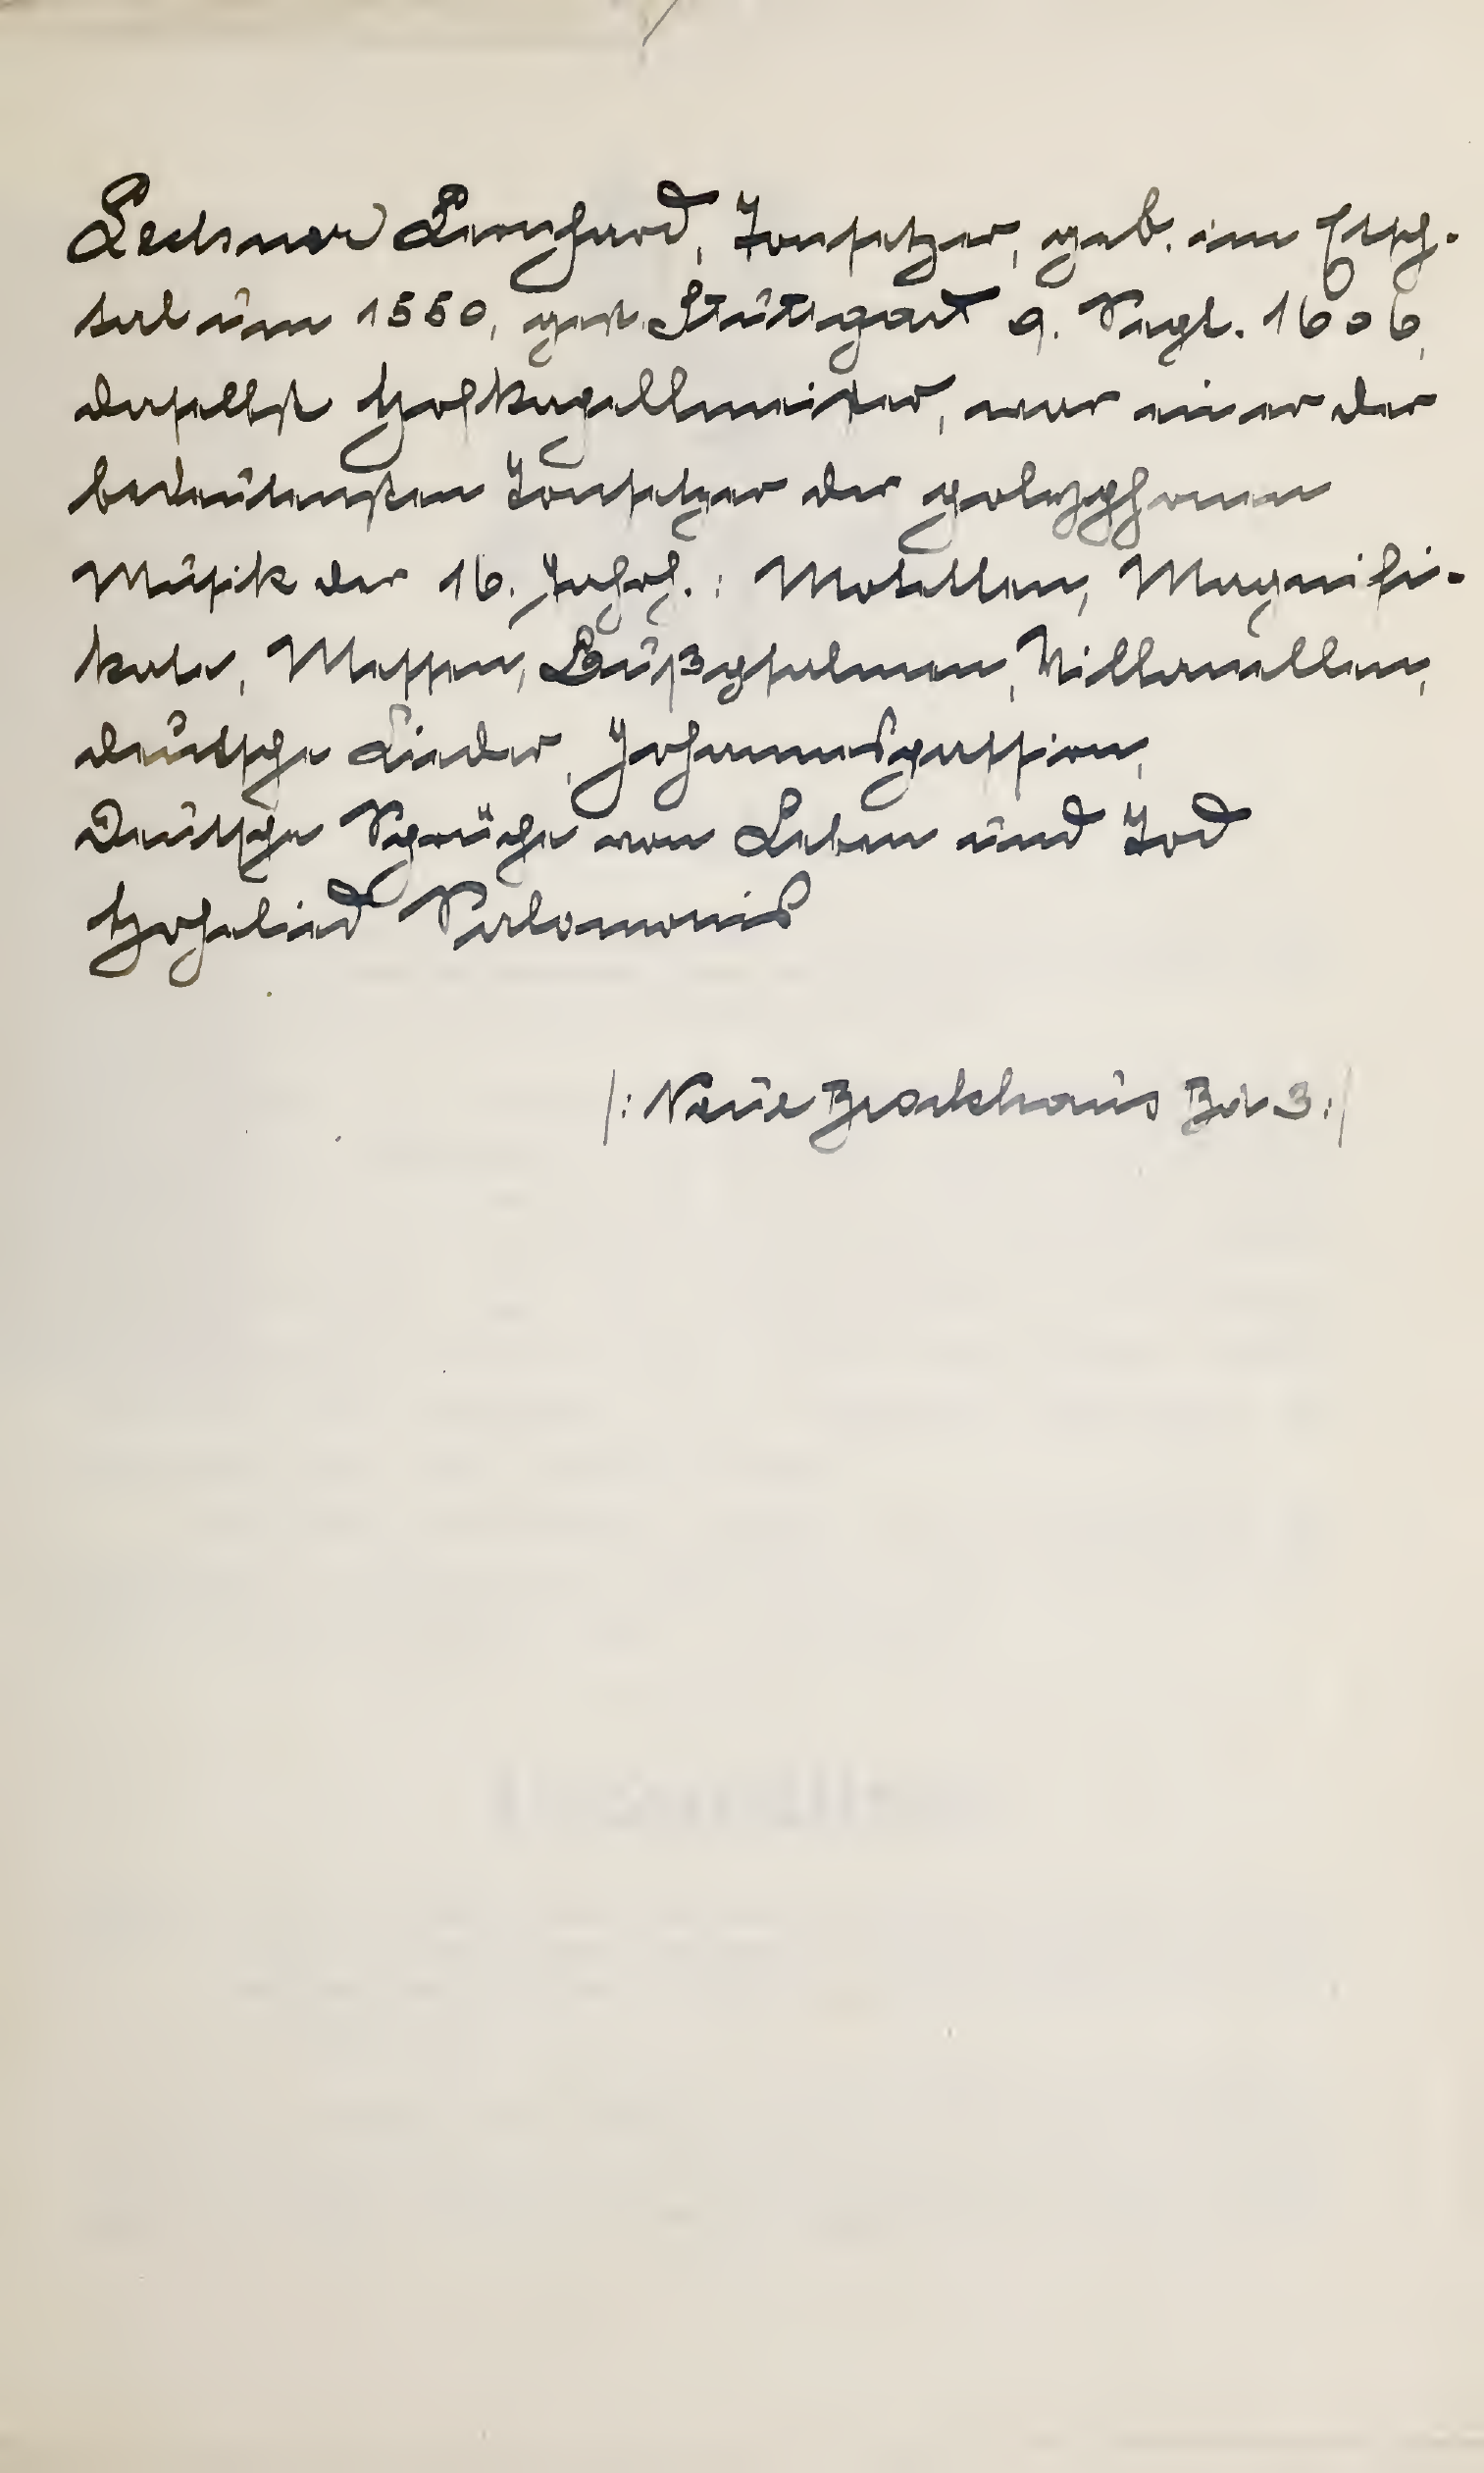 Lechner Leonhard, Tonsetzer, geb. im Etsch-
tal um 1550, gest. Stuttgart 9. Sept. 1606,
daselbst Hofkapellmeister, war einer der
bedeutensten Tonsetzer der polyphonen
Musik der 16. Jahrh.: Motetten, Magnifi-
kate, Messen, Bußpsalmen, Villanellen,
deutsche Lieder, Johannespassion,
Deutsche Sprüche von Leben und Tod
Hohelied Salomonis
/: Neue Brockhaus Bd 3 :/